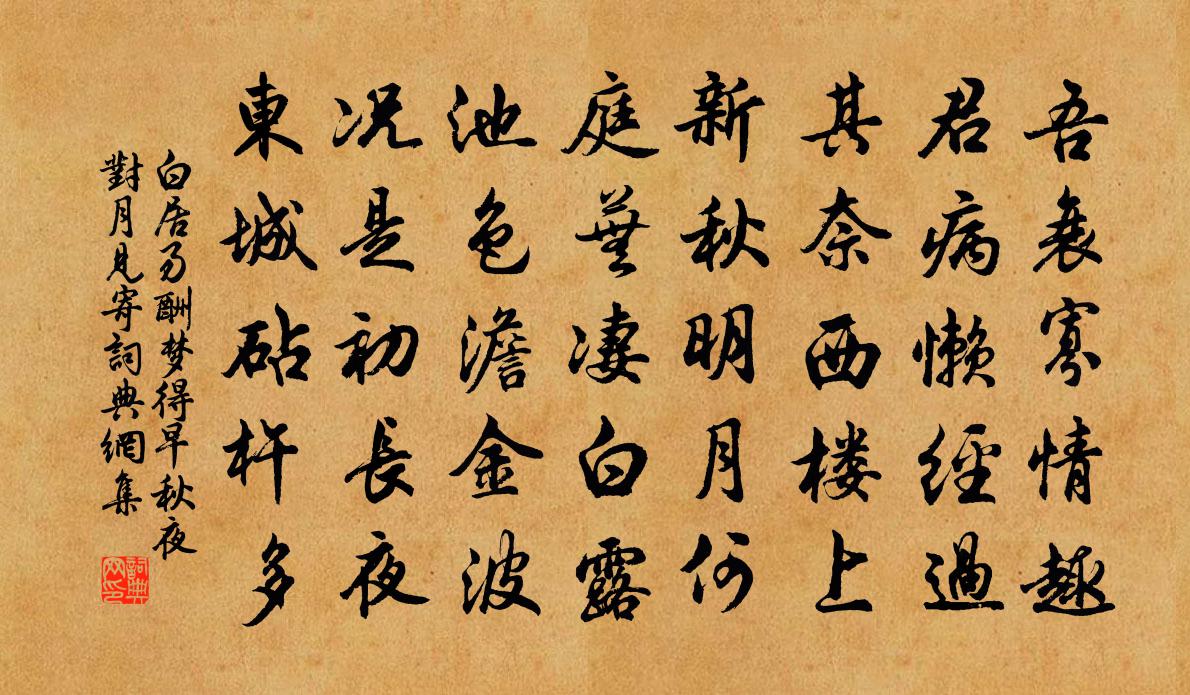 吾衰寡情趣
君病懒經過
其奈西楼上
新秋明月何
庭蕪凄白露
池色澹金波
况是初長夜
東城砧杵多
白居易酬梦得早秋夜
對月見寄詞典網集
詞典网印